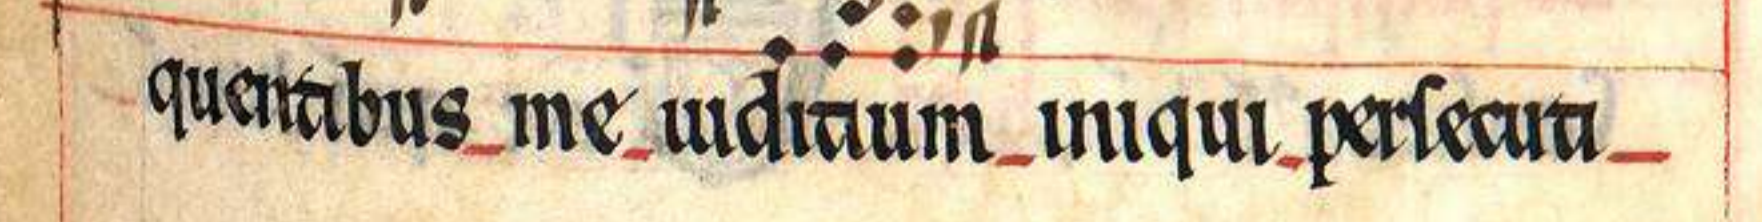 quentibus me iuditium iniqui persecuti